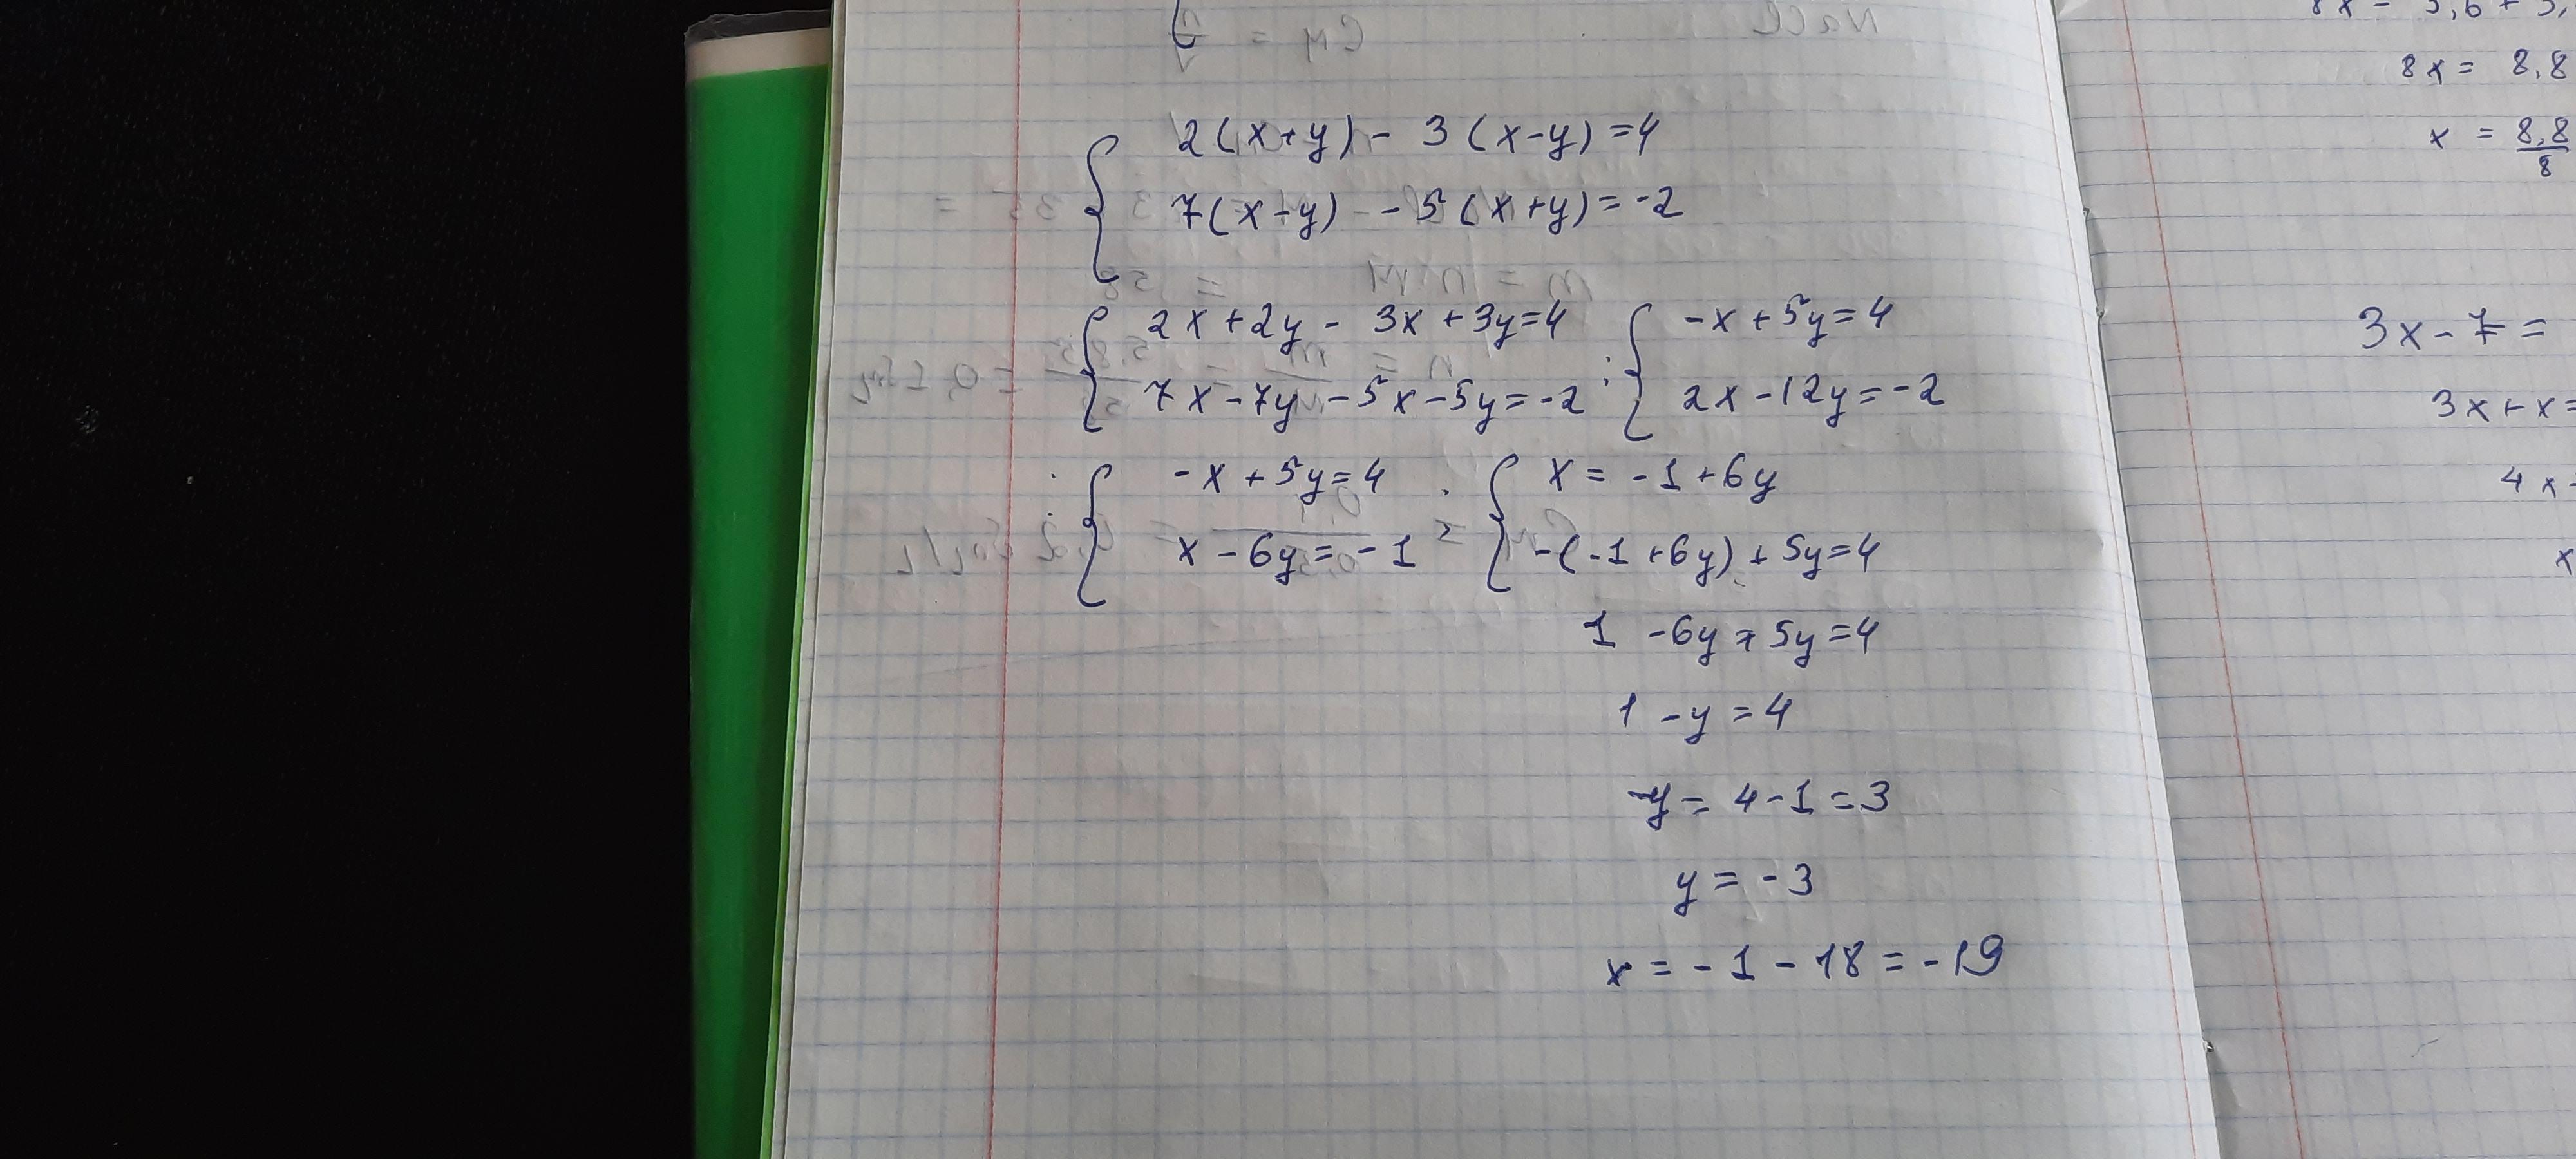 2(x+y) - 3(x-y)=4
7(x-y) -5(x+y)=-2
2x+2y- 3x+3y=4 ; -x+5y=4
7x-7y-5x-5y=-2 2x-12y=-2
-x+5y=4 ; x=-1+6y
x-6y=-1 -(-1+6y)+5y=4
1 -6y+5y=4
1 -y=4
-y= 4-1=3
y=-3
x=-1-18=-19
8x= 8,8
x = 8,8
8
3x-7=
3x+x=
4x-
x